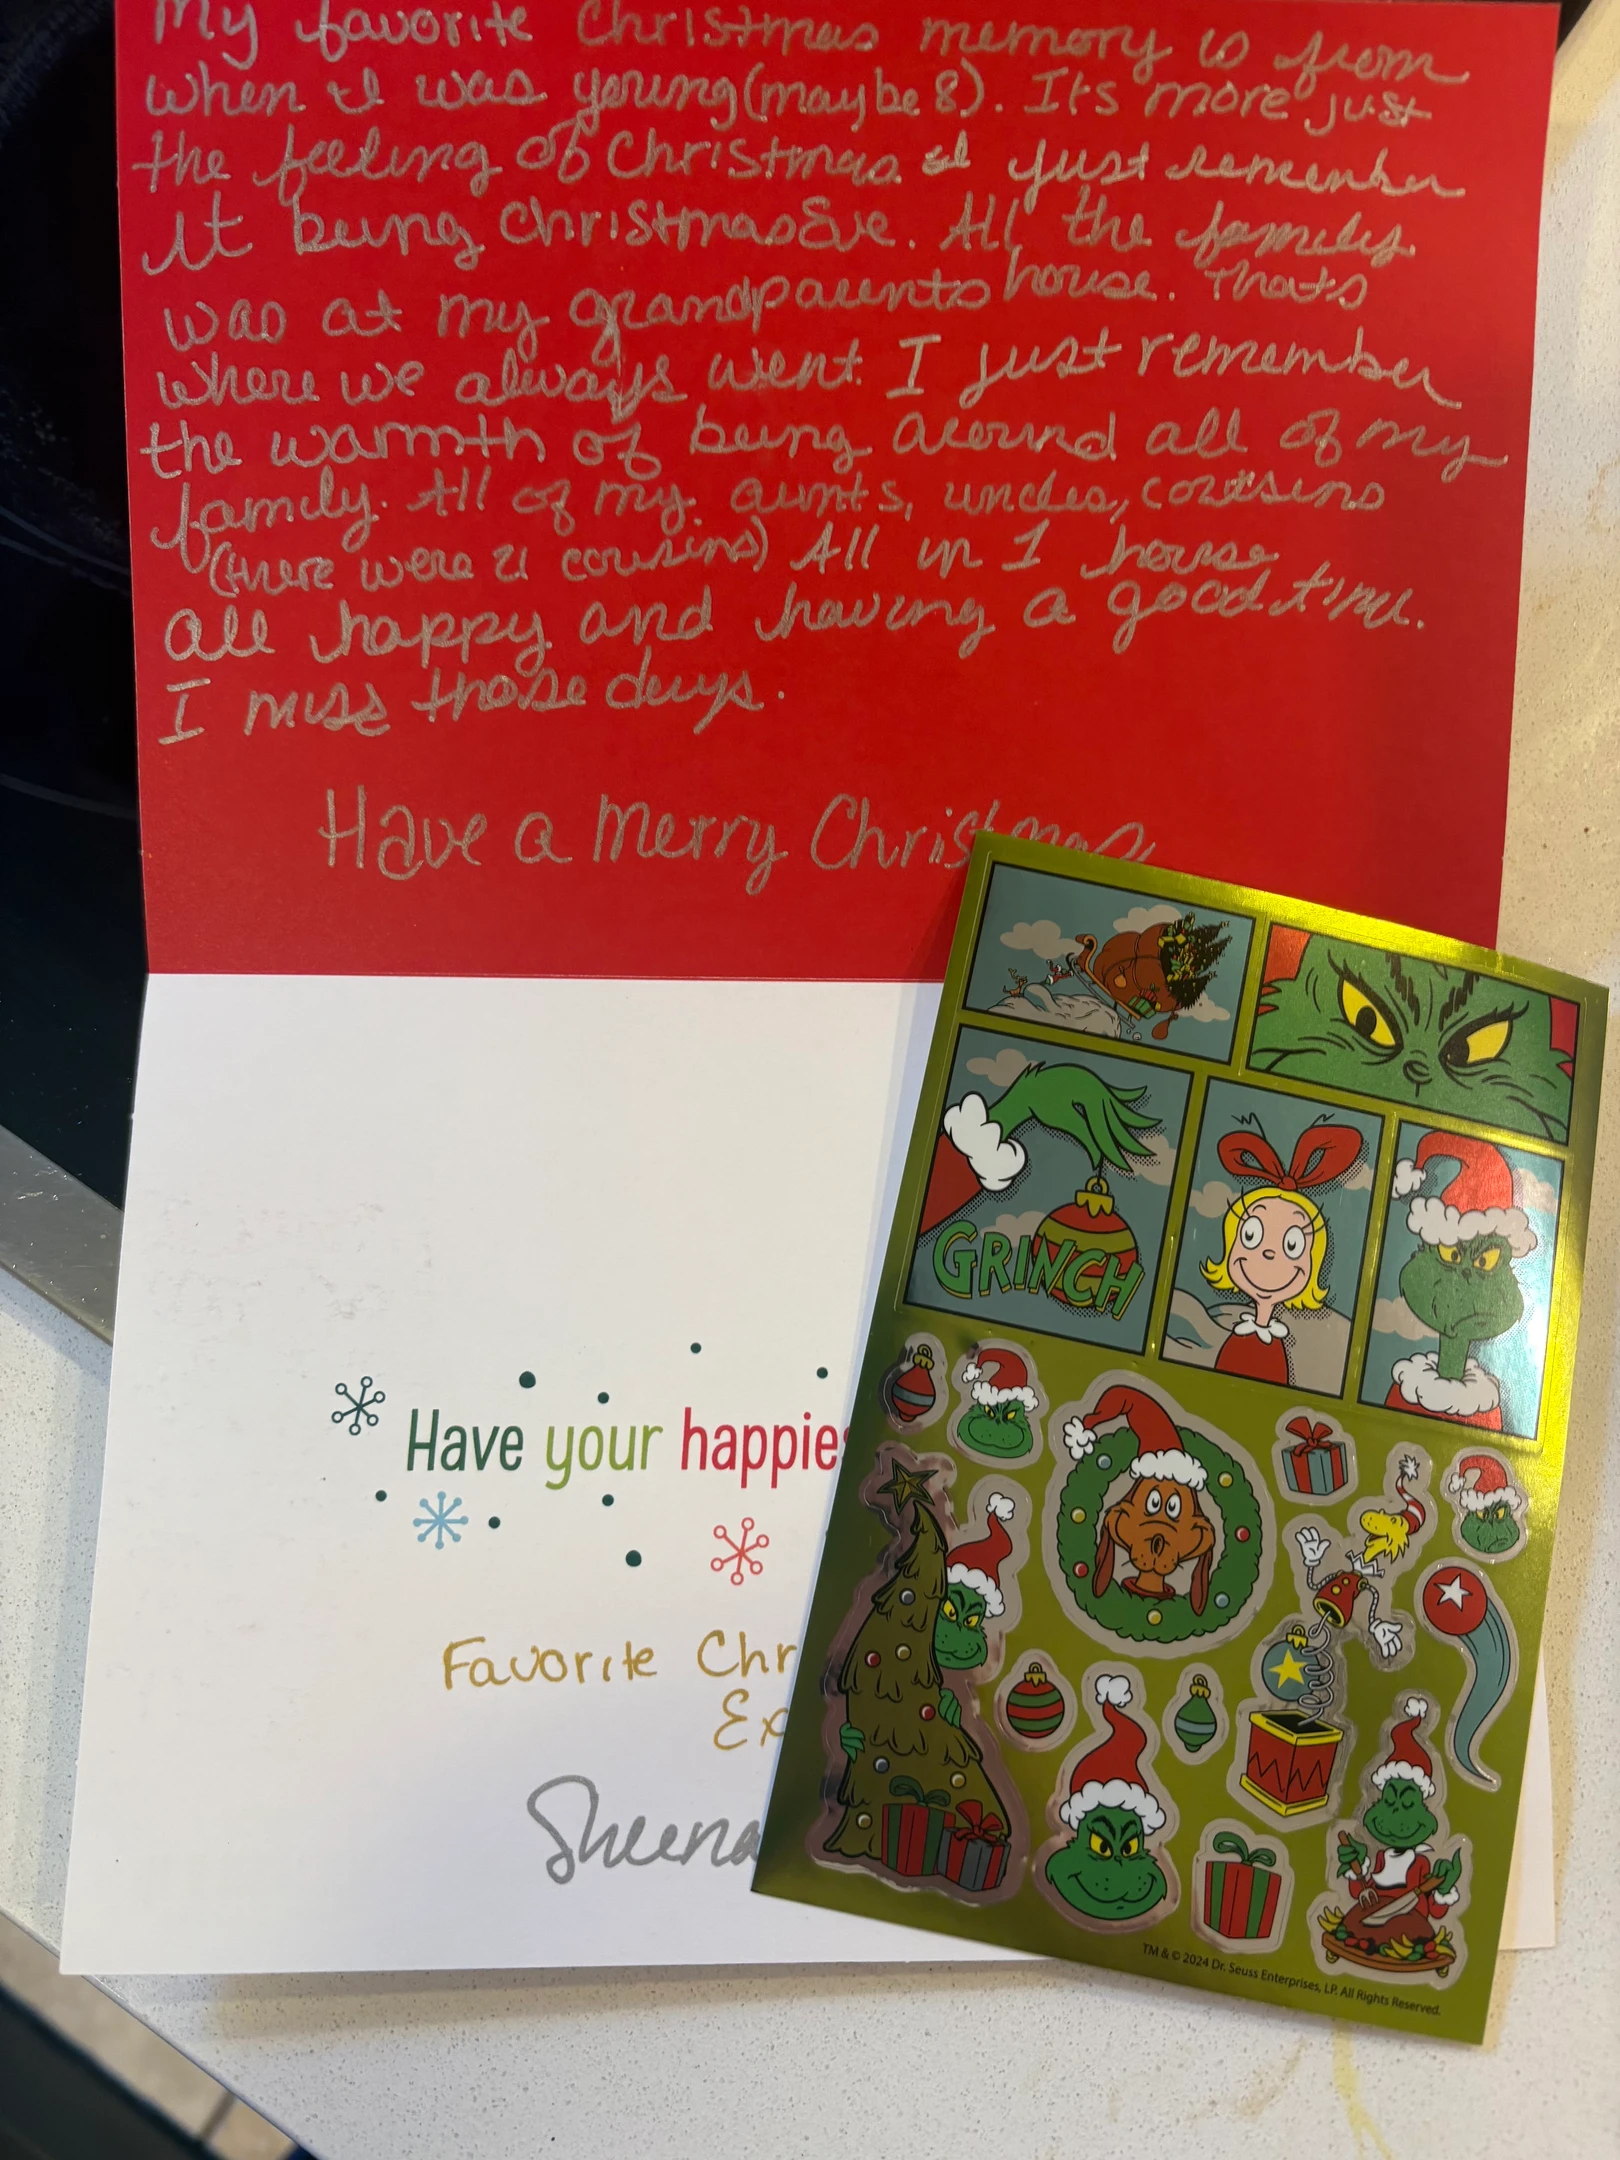 My favorite Christmas memory is from
when I was young (maybe 8). It's more just
the feeling of Christmas. I just remember
it being Christmas Eve. All the family
was at my grandparents house. That's
where we always went. I just remember
the warmth of being around all of my
family. All of my aunts, uncles, cousins
(there were 21 cousins) All in 1 house
all happy and having a good time.
I miss those days.
Have a Merry Christmas
GRINCH
Have your happies
Favorite Chr
Ex
Sheena
TM & © 2024 Dr. Seuss Enterprises, LP. All Rights Reserved.